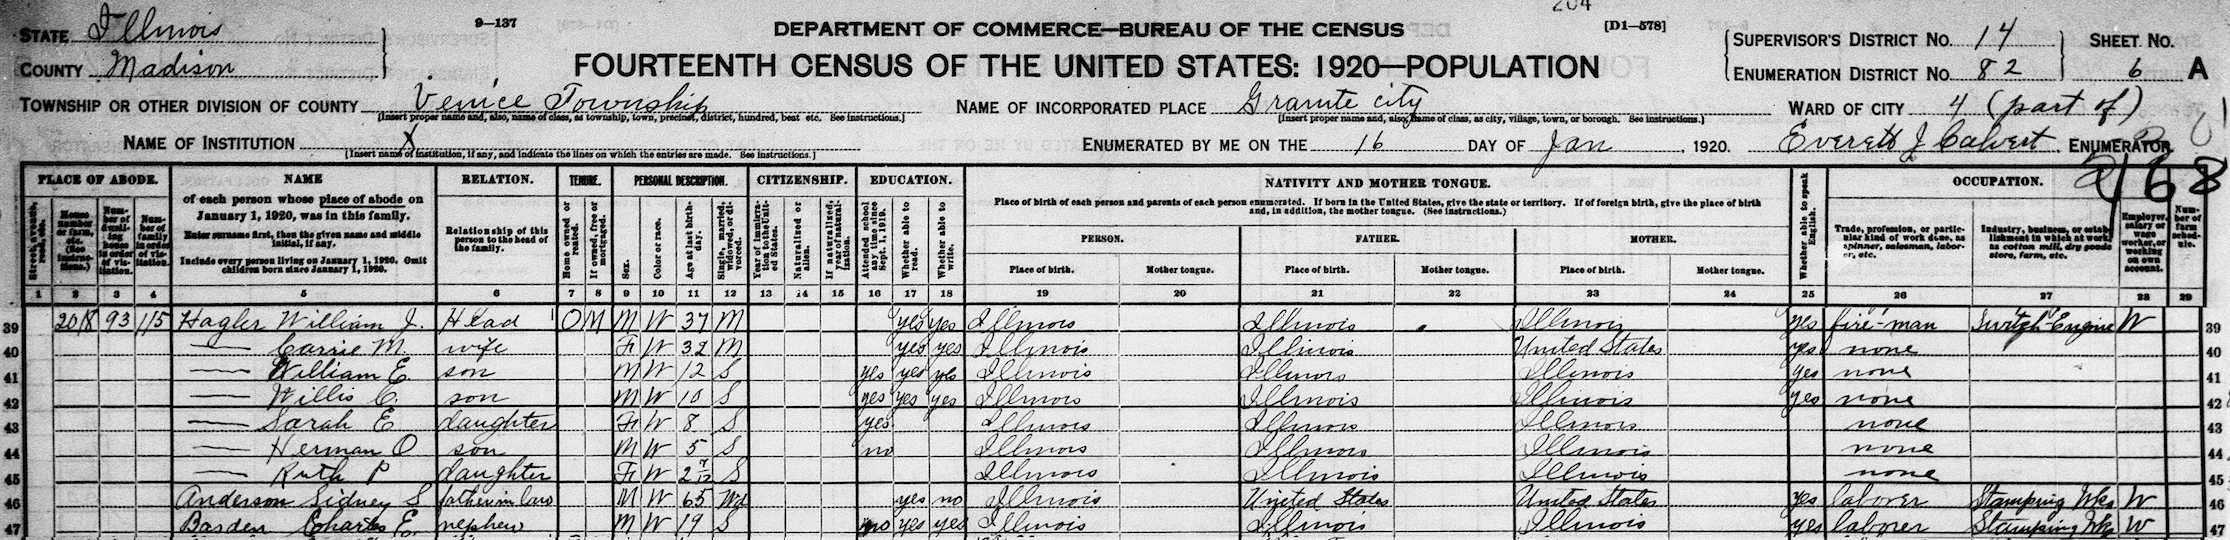 204
9—137
STATE Illinois
COUNTY Madison
DEPARTMENT OF COMMERCE—BUREAU OF THE CENSUS
[D1—578]
FOURTEENTH CENSUS OF THE UNITED STATES: 1920—POPULATION
SUPERVISOR'S DISTRICT No. 14
ENUMERATION DISTRICT No. 82
SHEET No. 6 A
TOWNSHIP OR OTHER DIVISION OF COUNTY Venice Township
[Insert proper name and, also, name of class, as township, town, precinct, district, hundred, beat etc. See instructions.]
NAME OF INCORPORATED PLACE Granite city
[Insert proper name and, also, name of class, as city, village, town, or borough. See instructions.]
WARD OF CITY 4 (part of)
NAME OF INSTITUTION X
[Insert name of institution, if any, and indicate the lines on which the entries are made. See instructions.]
ENUMERATED BY ME ON THE 16 DAY OF Jan, 1920. Everett J Calvert ENUMERATOR
2468
PLACE OF ABODE.
Street, avenue, road, etc.
House number or farm, etc. (See instructions.)
Number of dwelling house in order of visitation.
Number of family in order of visitation.
NAME
of each person whose place of abode on January 1, 1920, was in this family.
Enter surname first, then the given name and middle initial, if any.
Include every person living on January 1, 1920. Omit children born since January 1, 1920.
RELATION.
Relationship of this person to the head of the family.
TENURE.
Home owned or rented.
If owned, free or mortgaged.
PERSONAL DESCRIPTION.
Sex.
Color or race.
Age at last birthday.
Single, married, widowed, or divorced.
CITIZENSHIP.
Year of immigration to the United States.
Naturalized or alien.
If naturalized, year of naturalization.
EDUCATION.
Attended school any time since Sept. 1, 1919.
Whether able to read.
Whether able to write.
NATIVITY AND MOTHER TONGUE.
Place of birth of each person and parents of each person enumerated. If born in the United States, give the state or territory. If of foreign birth, give the place of birth and, in addition, the mother tongue. (See instructions.)
PERSON. FATHER. MOTHER.
Place of birth. Mother tongue. Place of birth. Mother tongue. Place of birth. Mother tongue.
Whether able to speak English.
OCCUPATION.
Trade, profession, or particular kind of work done, as spinner, salesman, laborer, etc.
Industry, business, or establishment in which at work, as cotton mill, dry goods store, farm, etc.
Employer, salary or wage worker, or working on own account.
Number of farm schedule.
1 2 3 4 5 6 7 8 9 10 11 12 13 14 15 16 17 18 19 20 21 22 23 24 25 26 27 28 29
39 2018 93 115 Hagler William J. Head O M M W 37 M yes yes Illinois Illinois Illinois yes fire-man Switch Engine W 39
40 — Carrie M. wife F W 32 M yes yes Illinois Illinois United States yes none 40
41 — William E. son M W 12 S yes yes yes Illinois Illinois Illinois yes none 41
42 — Willis C. son M W 10 S yes yes yes Illinois Illinois Illinois yes none 42
43 — Sarah E daughter F W 8 S yes Illinois Illinois Illinois none 43
44 — Herman O son M W 5 S no Illinois Illinois Illinois none 44
45 — Ruth P daughter F W 2 7/12 S Illinois Illinois Illinois none 45
46 Anderson Sidney S father in law M W 65 Wd yes no Illinois United States United States yes laborer Stamping Wks W 46
47 Barden Charles E. nephew M W 19 S no yes yes Illinois Illinois Illinois yes laborer Stamping Wks W 47